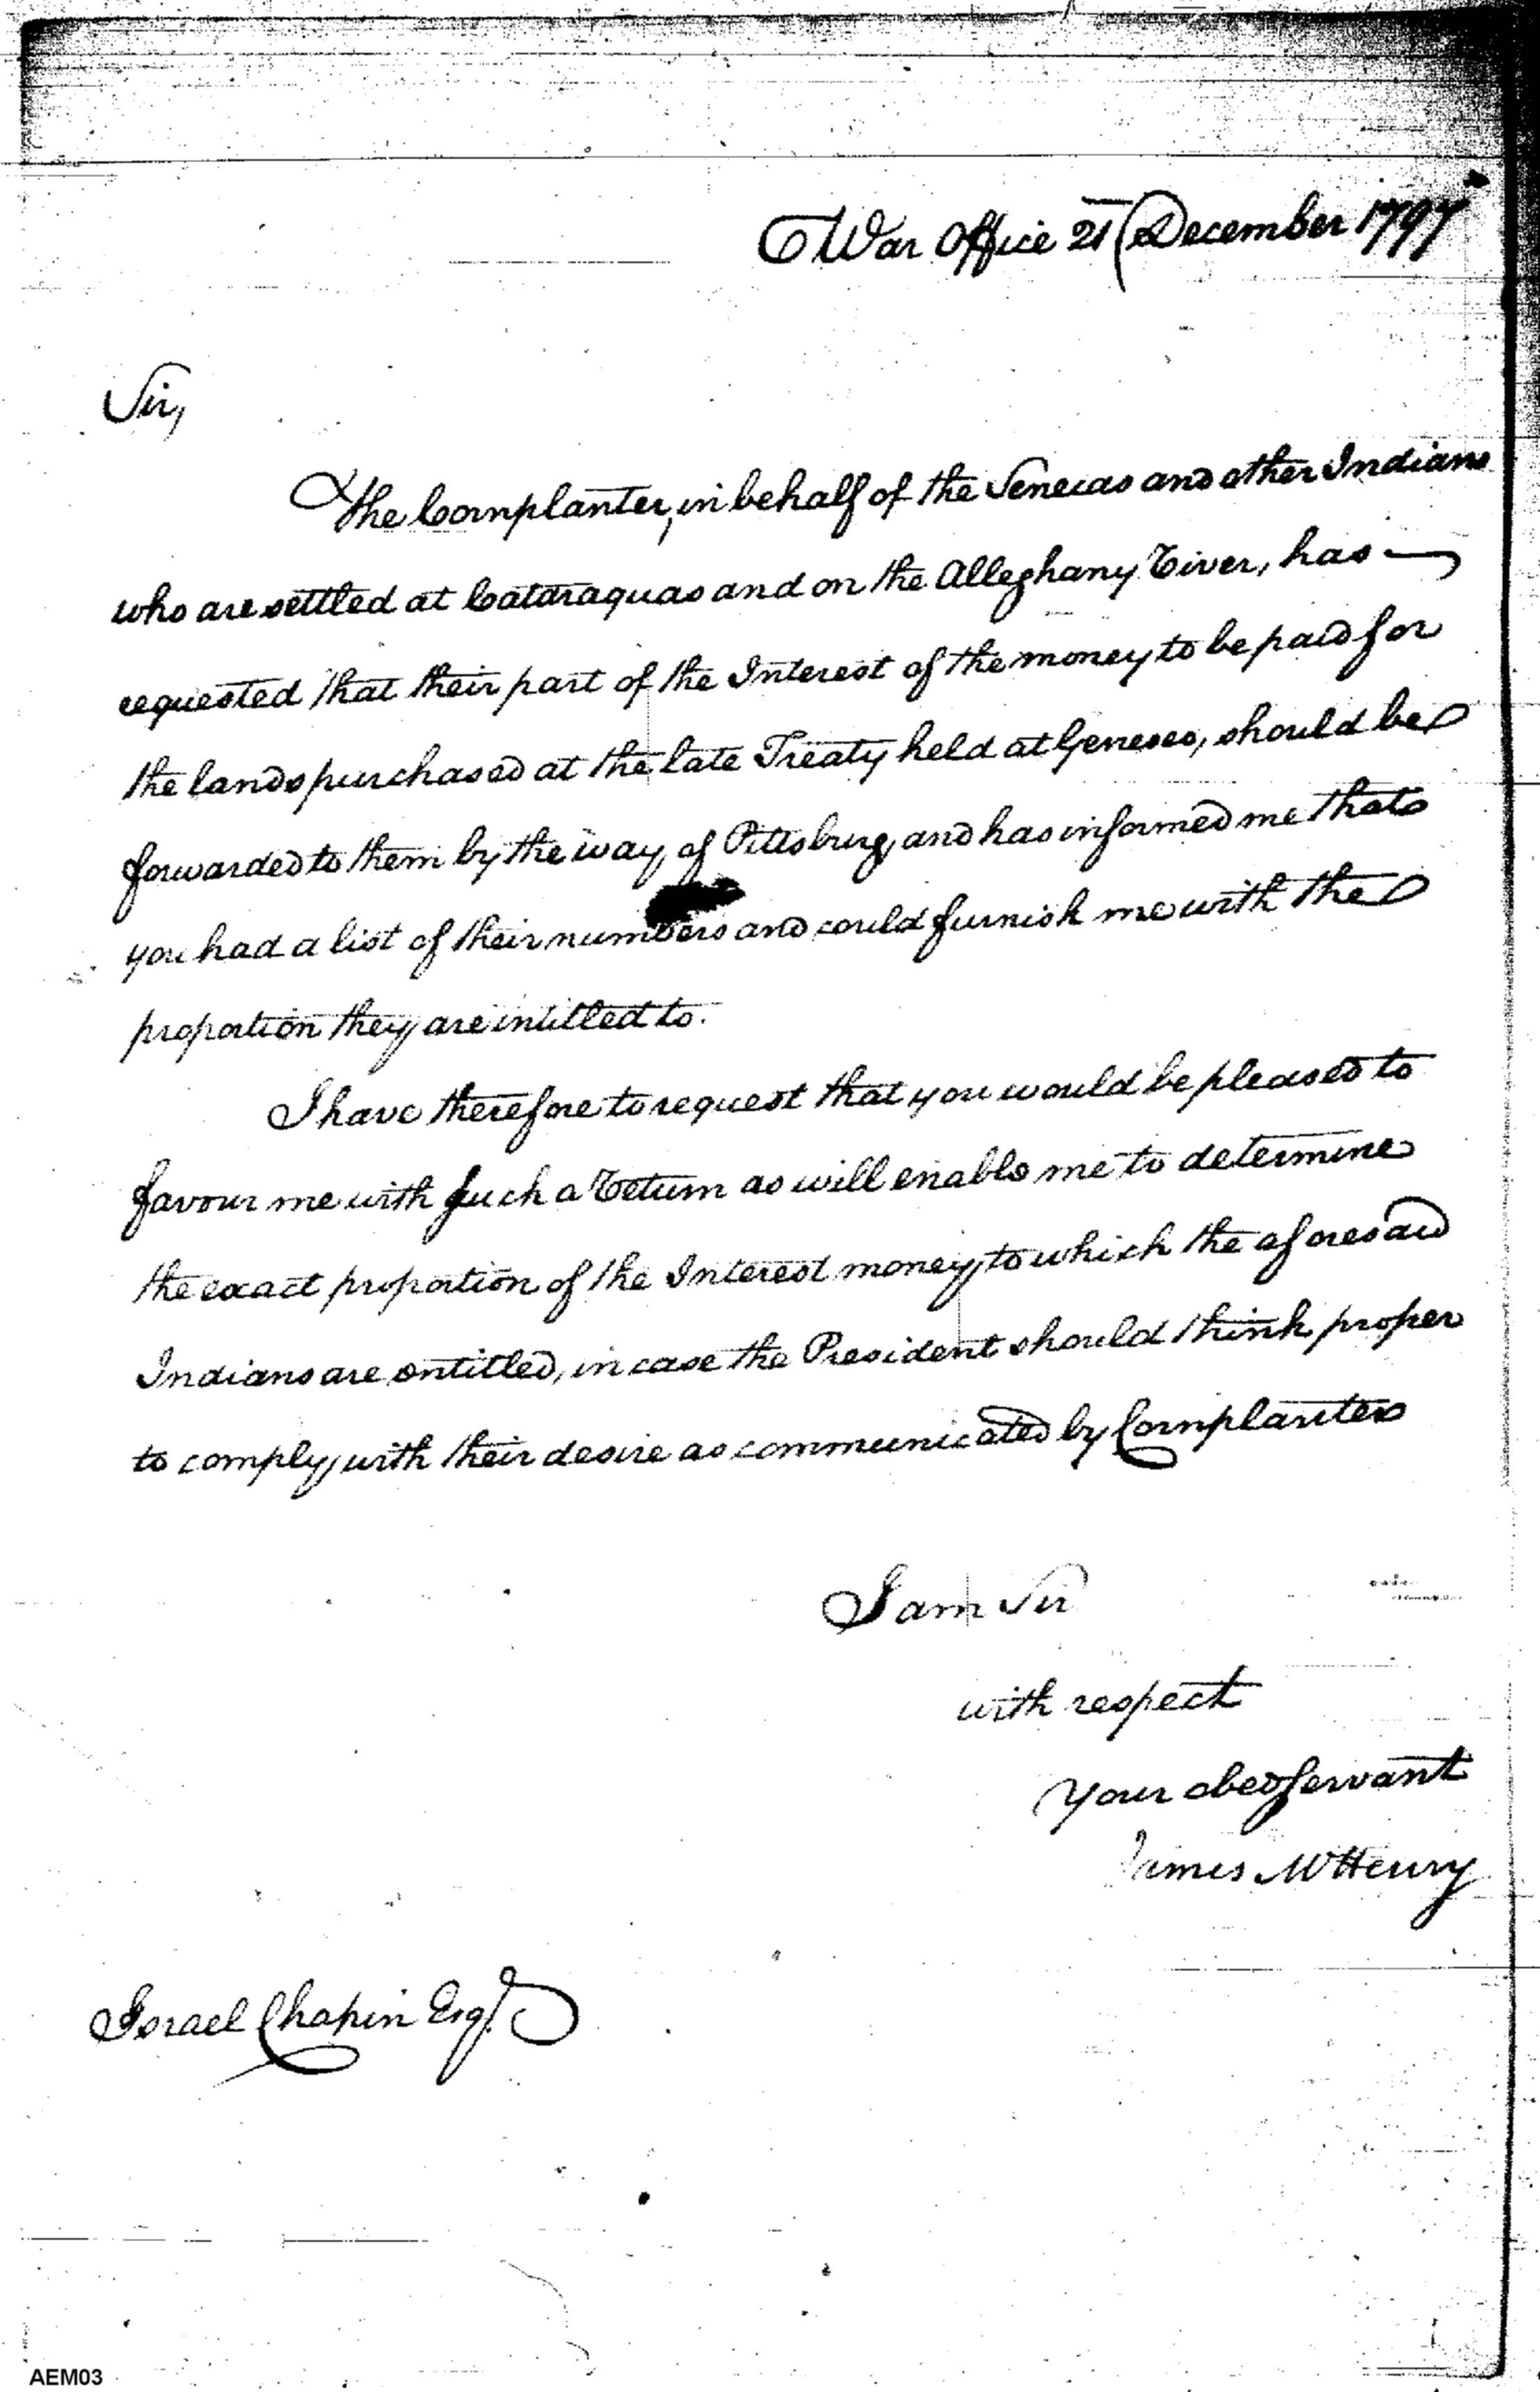 War Office 21 December 1797
Sir,
The Cornplanter, in behalf of the Senecas and other Indians
who are settled at Cataraquas and on the Alleghany River, has
requested that their part of the Interest of the money to be paid for
the lands purchased at the late Treaty held at Genesee, should be
forwarded to them by the way of Pittsburg, and has informed me that
you had a list of their numbers and could furnish me with the
proportion they are intitled to.
I have therefore to request that you would be pleased to
favour me with such a Return as will enable me to determine
the exact proportion of the Interest money, to which the aforesaid
Indians are entitled, in case the President should think proper
to comply with their desire as communicated by Cornplanter
I am Sir
with respect
Your obed servant
James McHenry
Israel Chapin Esqr.
AEM03